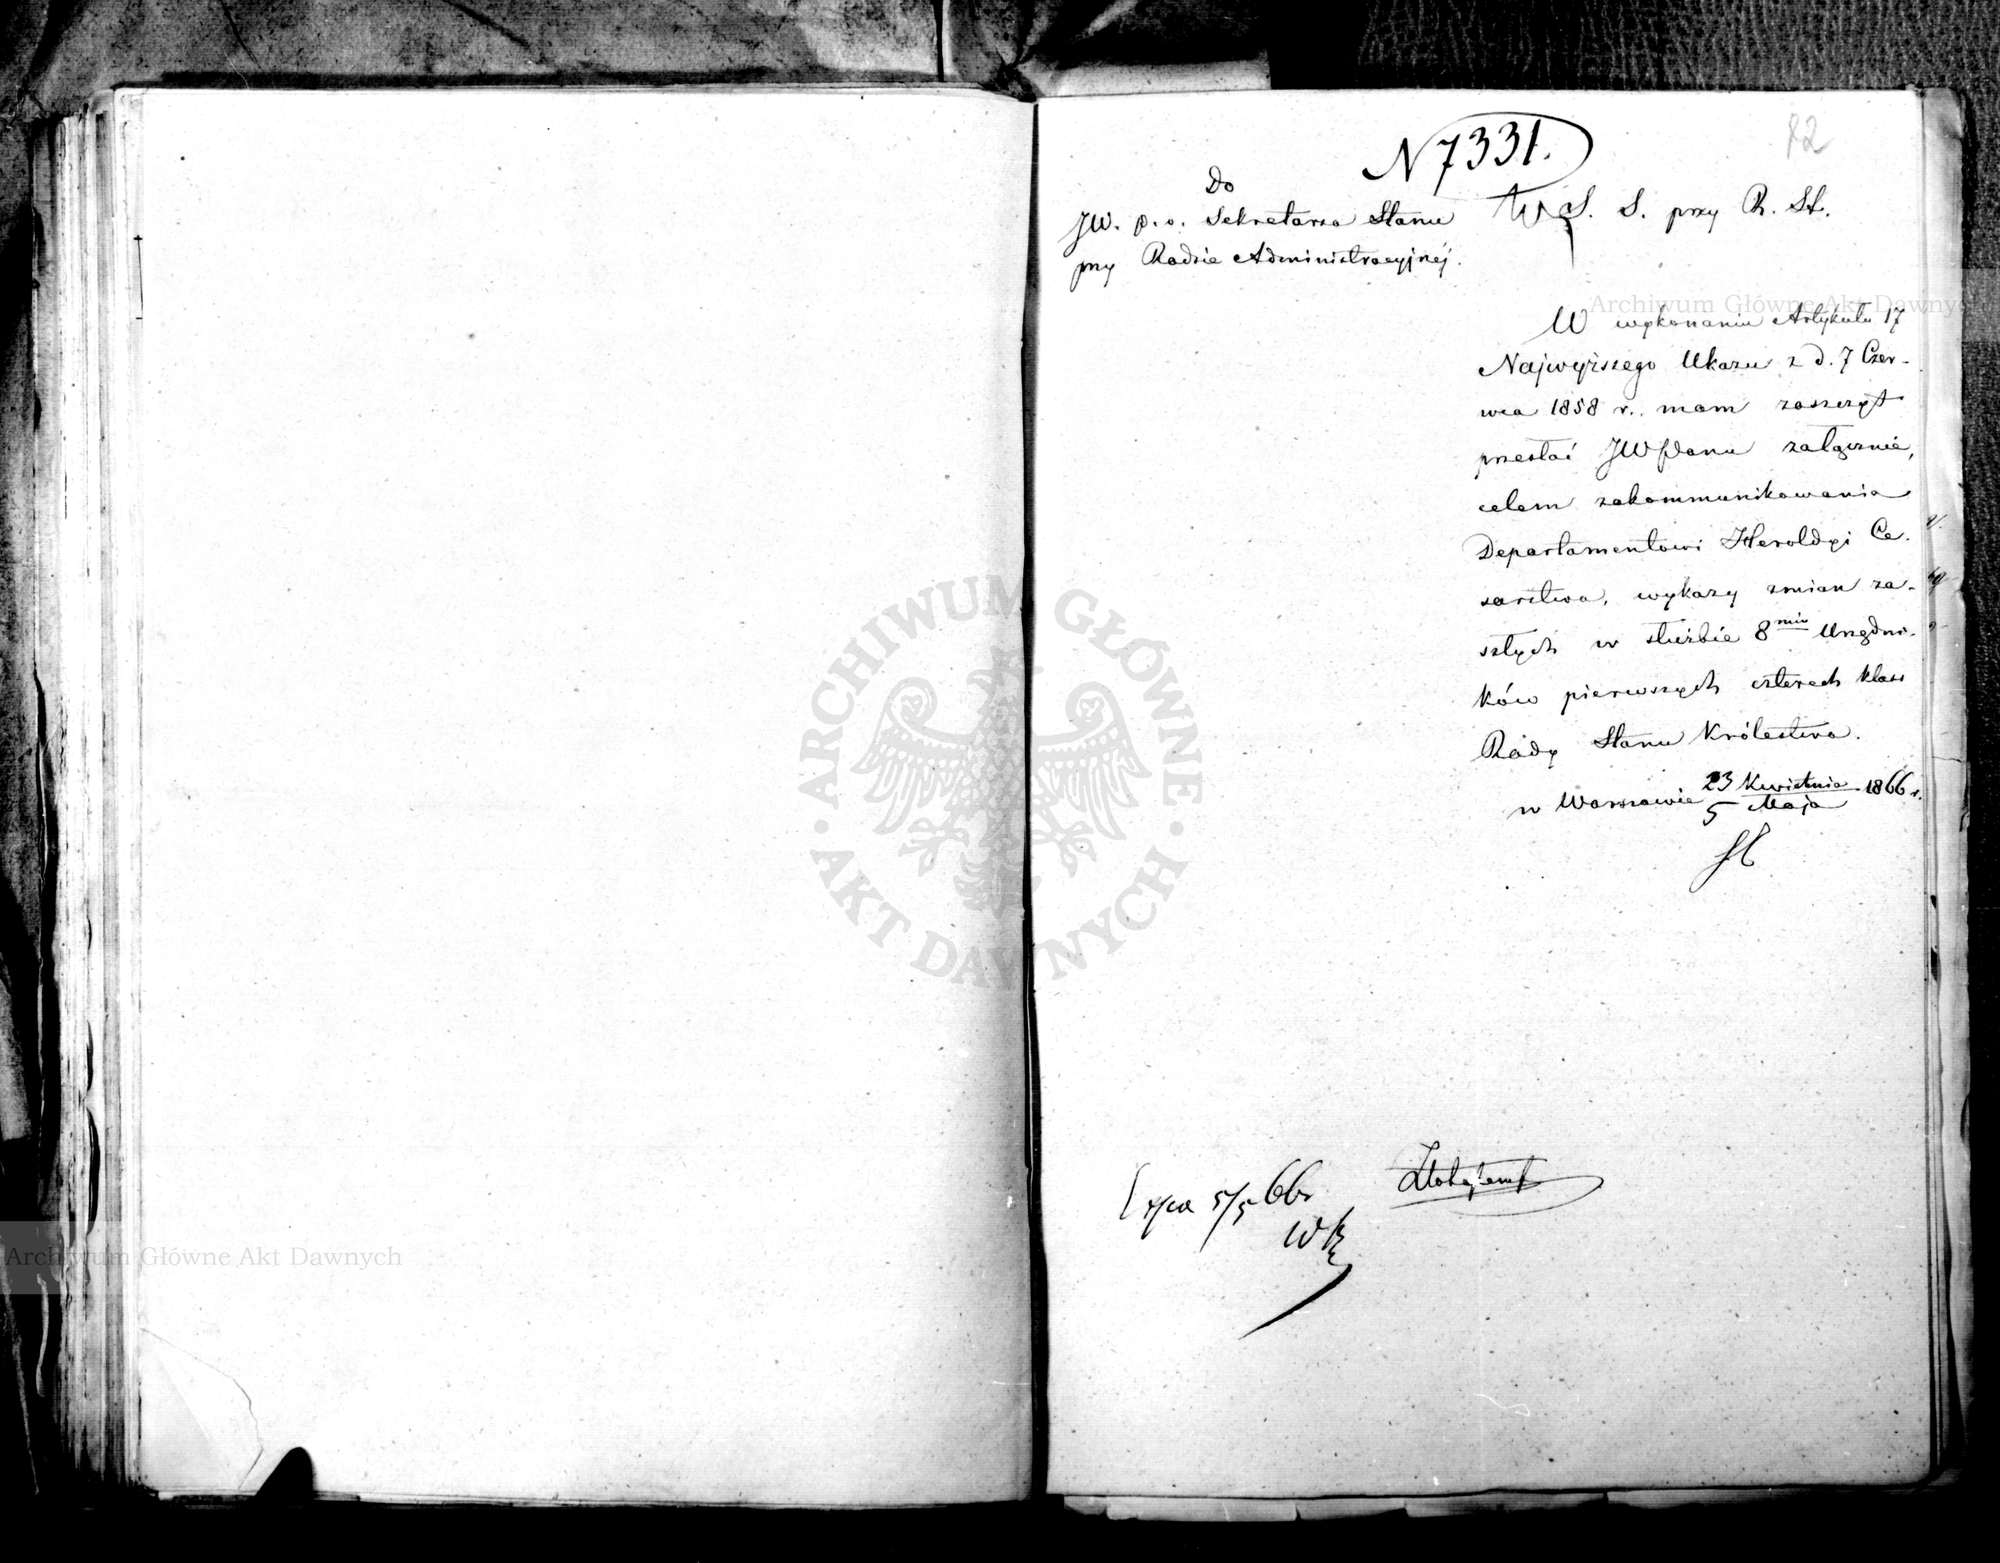 N 7331.
82
Do
JW. p. o. Sekretarza Stanu
przy Radzie Administracyjnéj.
S. S. przy R. St.
W wykonaniu Artykułu 17
Najwyższego Ukazu z d. 7 Czer-
wca 1858 r. mam zaszczyt
przesłać JWPanu załącznie,
celem zakommunikowania
Departamentowi Heroldyi Ce-
sarstwa, wykazy zmian za-
szłych w służbie 8miu Urzędni-
ków pierwszych czterech klass
Rady Stanu Królestwa.
w Warszawie 23 Kwietnia / 5 Maja 1866 r.
5/5 66
Archiwum Główne Akt Dawnych
ARCHIWUM GŁÓWNE
AKT DAWNYCH
Archiwum Główne Akt Dawnych